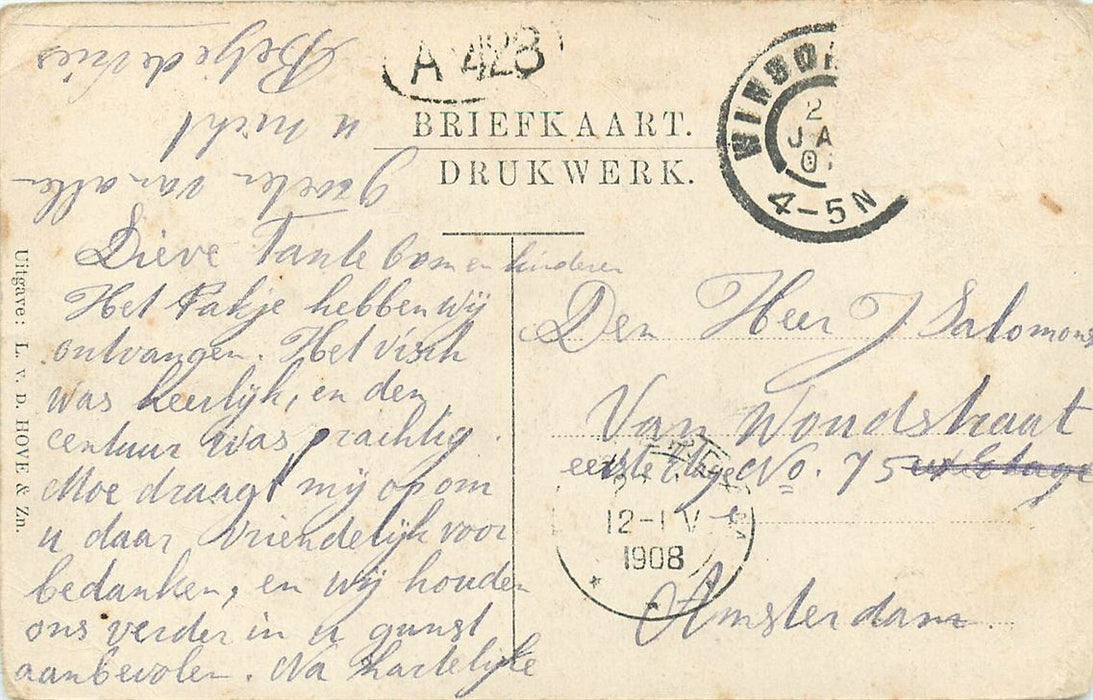 A 428
BRIEFKAART.
DRUKWERK.
WINSCH
2
JA
0
4-5N
Lieve Tante Com en kinderen
Het Pakje hebben wij
ontvangen. Het visch
was heerlijk, en den
centuur was prachtig.
Moe draagt mij op om
u daar vriendelijk voor
bedanken, en wij houden
ons verder in u gunst
aanbevolen. Na hartelijke
groeten van allen
u nicht
Betje de Vries
Den Heer J Salomons
Van Woudstraat
eerste Etage No. 75
Amsterdam
12-1 V
1908
Uitgave: L. v. D. HOVE & Zn.